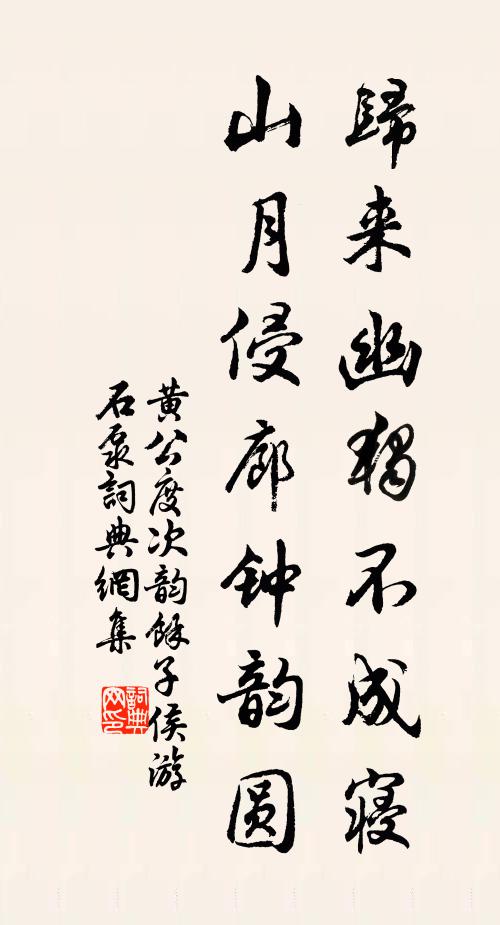 歸来幽獨不成寝
山月侵廊钟韵圆
黄公度次韵餘子侯游
石泉詞典網集
詞典网印